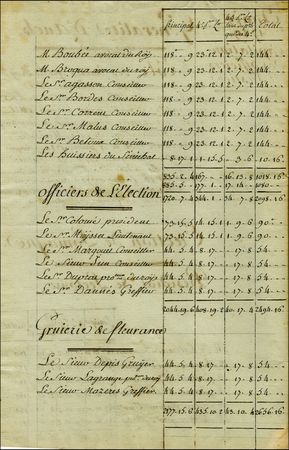 Principal 4 s. p. L. Total
M. Boubée avocat du Roy 118 .. 9 23.12.1 2.7.2 144
M. Bruqua avocat du roy 118 .. 9 23.12.1 2.7.2 144
Le Sr. agasson Conseiller 118 .. 9 23.12.1 2.7.2 144
Le Sr. Bordes Conseiller 118 .. 9 23.12.1 2.7.2 144
Le Sr. Correm Conseiller 118 .. 9 23.12.1 2.7.2 144
Le Sr. Malus Conseiller 118 .. 9 23.12.1 2.7.2 144
Le Sr. Conseiller 118 .. 9 23.12.1 2.7.2 144
Les huissiers du Sénéchal 8.17.1 1.15.5 3.6 10.16
officiers de L'élection
Le Sr. Colomé président 73.15.5 14.15.1 1.9.6 90
Le Sr. Lieutenant 73.15.5 14.15.1 1.9.6 90
Le Sr. Marquié Conseiller 44.5.4 8.17 17.8 54
Le Sieur Conseiller 44.5.4 8.17 17.8 54
Le Sr. Dupin du roy 44.5.4 8.17 17.8 54
Le Sr. Danniés Greffier 44.5.4 8.17 17.8 54
2044.19.6 408.19.2 40.17.4 2494.16
Gruierie de fleurance
Le Sieur Depis Gruyer 44.5.4 8.17 17.8 54
Le Sieur Lagrange du roy 44.5.4 8.17 17.8 54
Le Sieur Mazeres Greffier 44.5.4 8.17 17.8 54
2177.15.6 435.10.2 43.10.4 2656.16